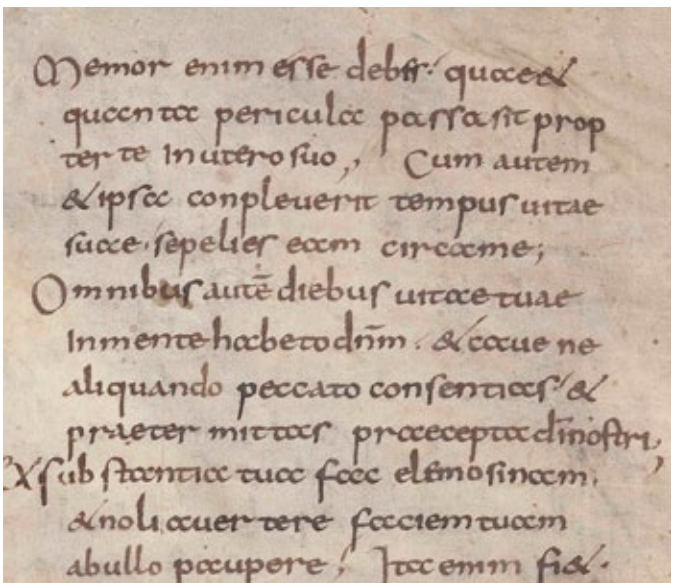 Memor enim esse debes· quae &
quanta pericula passa sit prop
ter te In utero suo,, Cum autem
& ipsa conpleverit tempus vitae
suae· sepelies eam circa me;
Omnibus autē diebus vitae tuae
In mente habeto dn̄m· & cave ne
aliquando peccato consentias· &
praeter mittas praecepta dī nostri,
Ex substantia tua fac elemosinam·
& noli avertere faciem tuam
ab ullo paupere; Ita enim fi&·